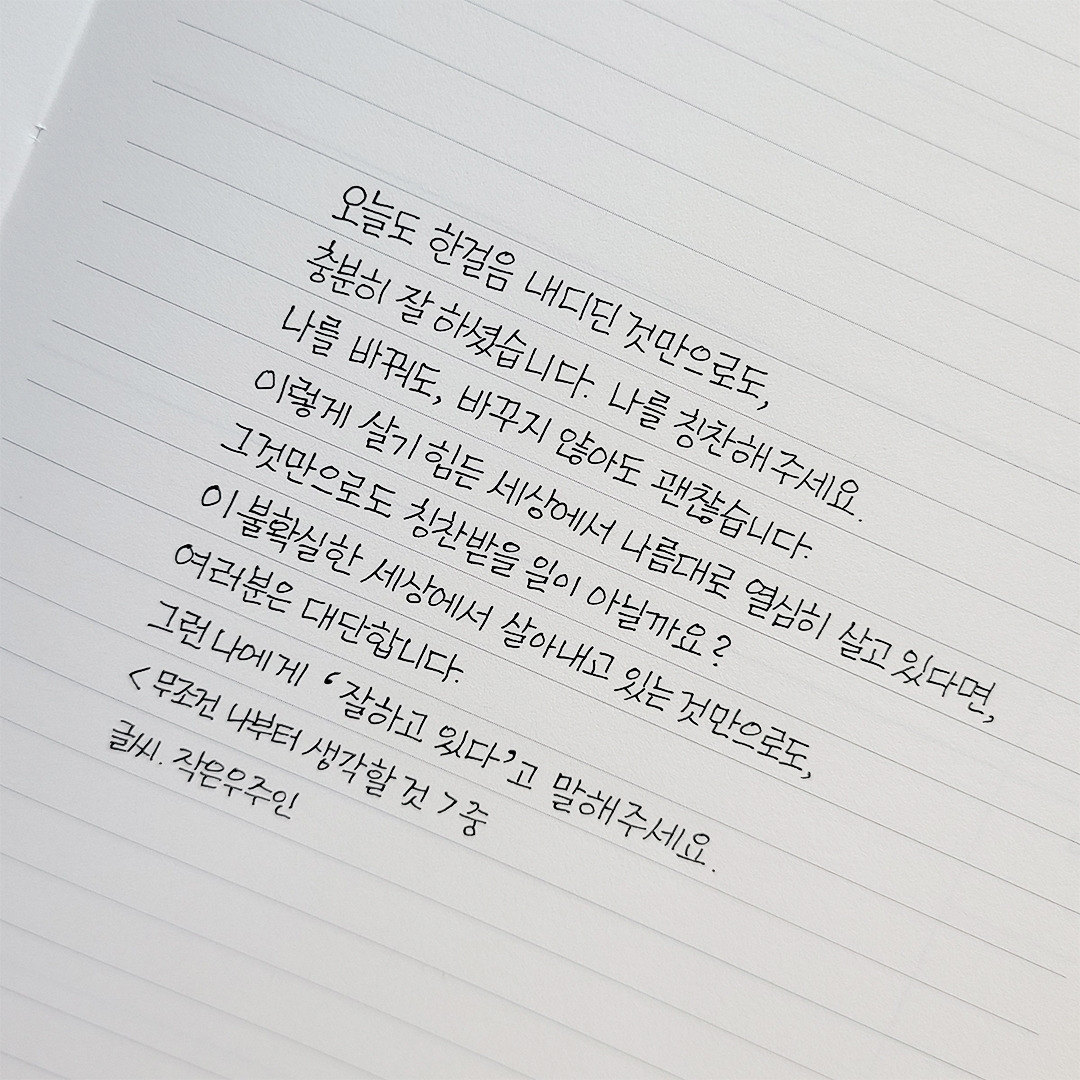 오늘도 한걸음 내디딘 것만으로도,
충분히 잘 하셨습니다. 나를 칭찬해 주세요.
나를 바꿔도, 바꾸지 않아도 괜찮습니다.
이렇게 살기 힘든 세상에서 나름대로 열심히 살고 있다면,
그것만으로도 칭찬받을 일이 아닐까요?
이 불확실한 세상에서 살아내고 있는 것만으로도,
여러분은 대단합니다.
그런 나에게 ‘잘하고 있다’고 말해 주세요.
<무조건 나부터 생각할 것>중
글씨. 작은우주인